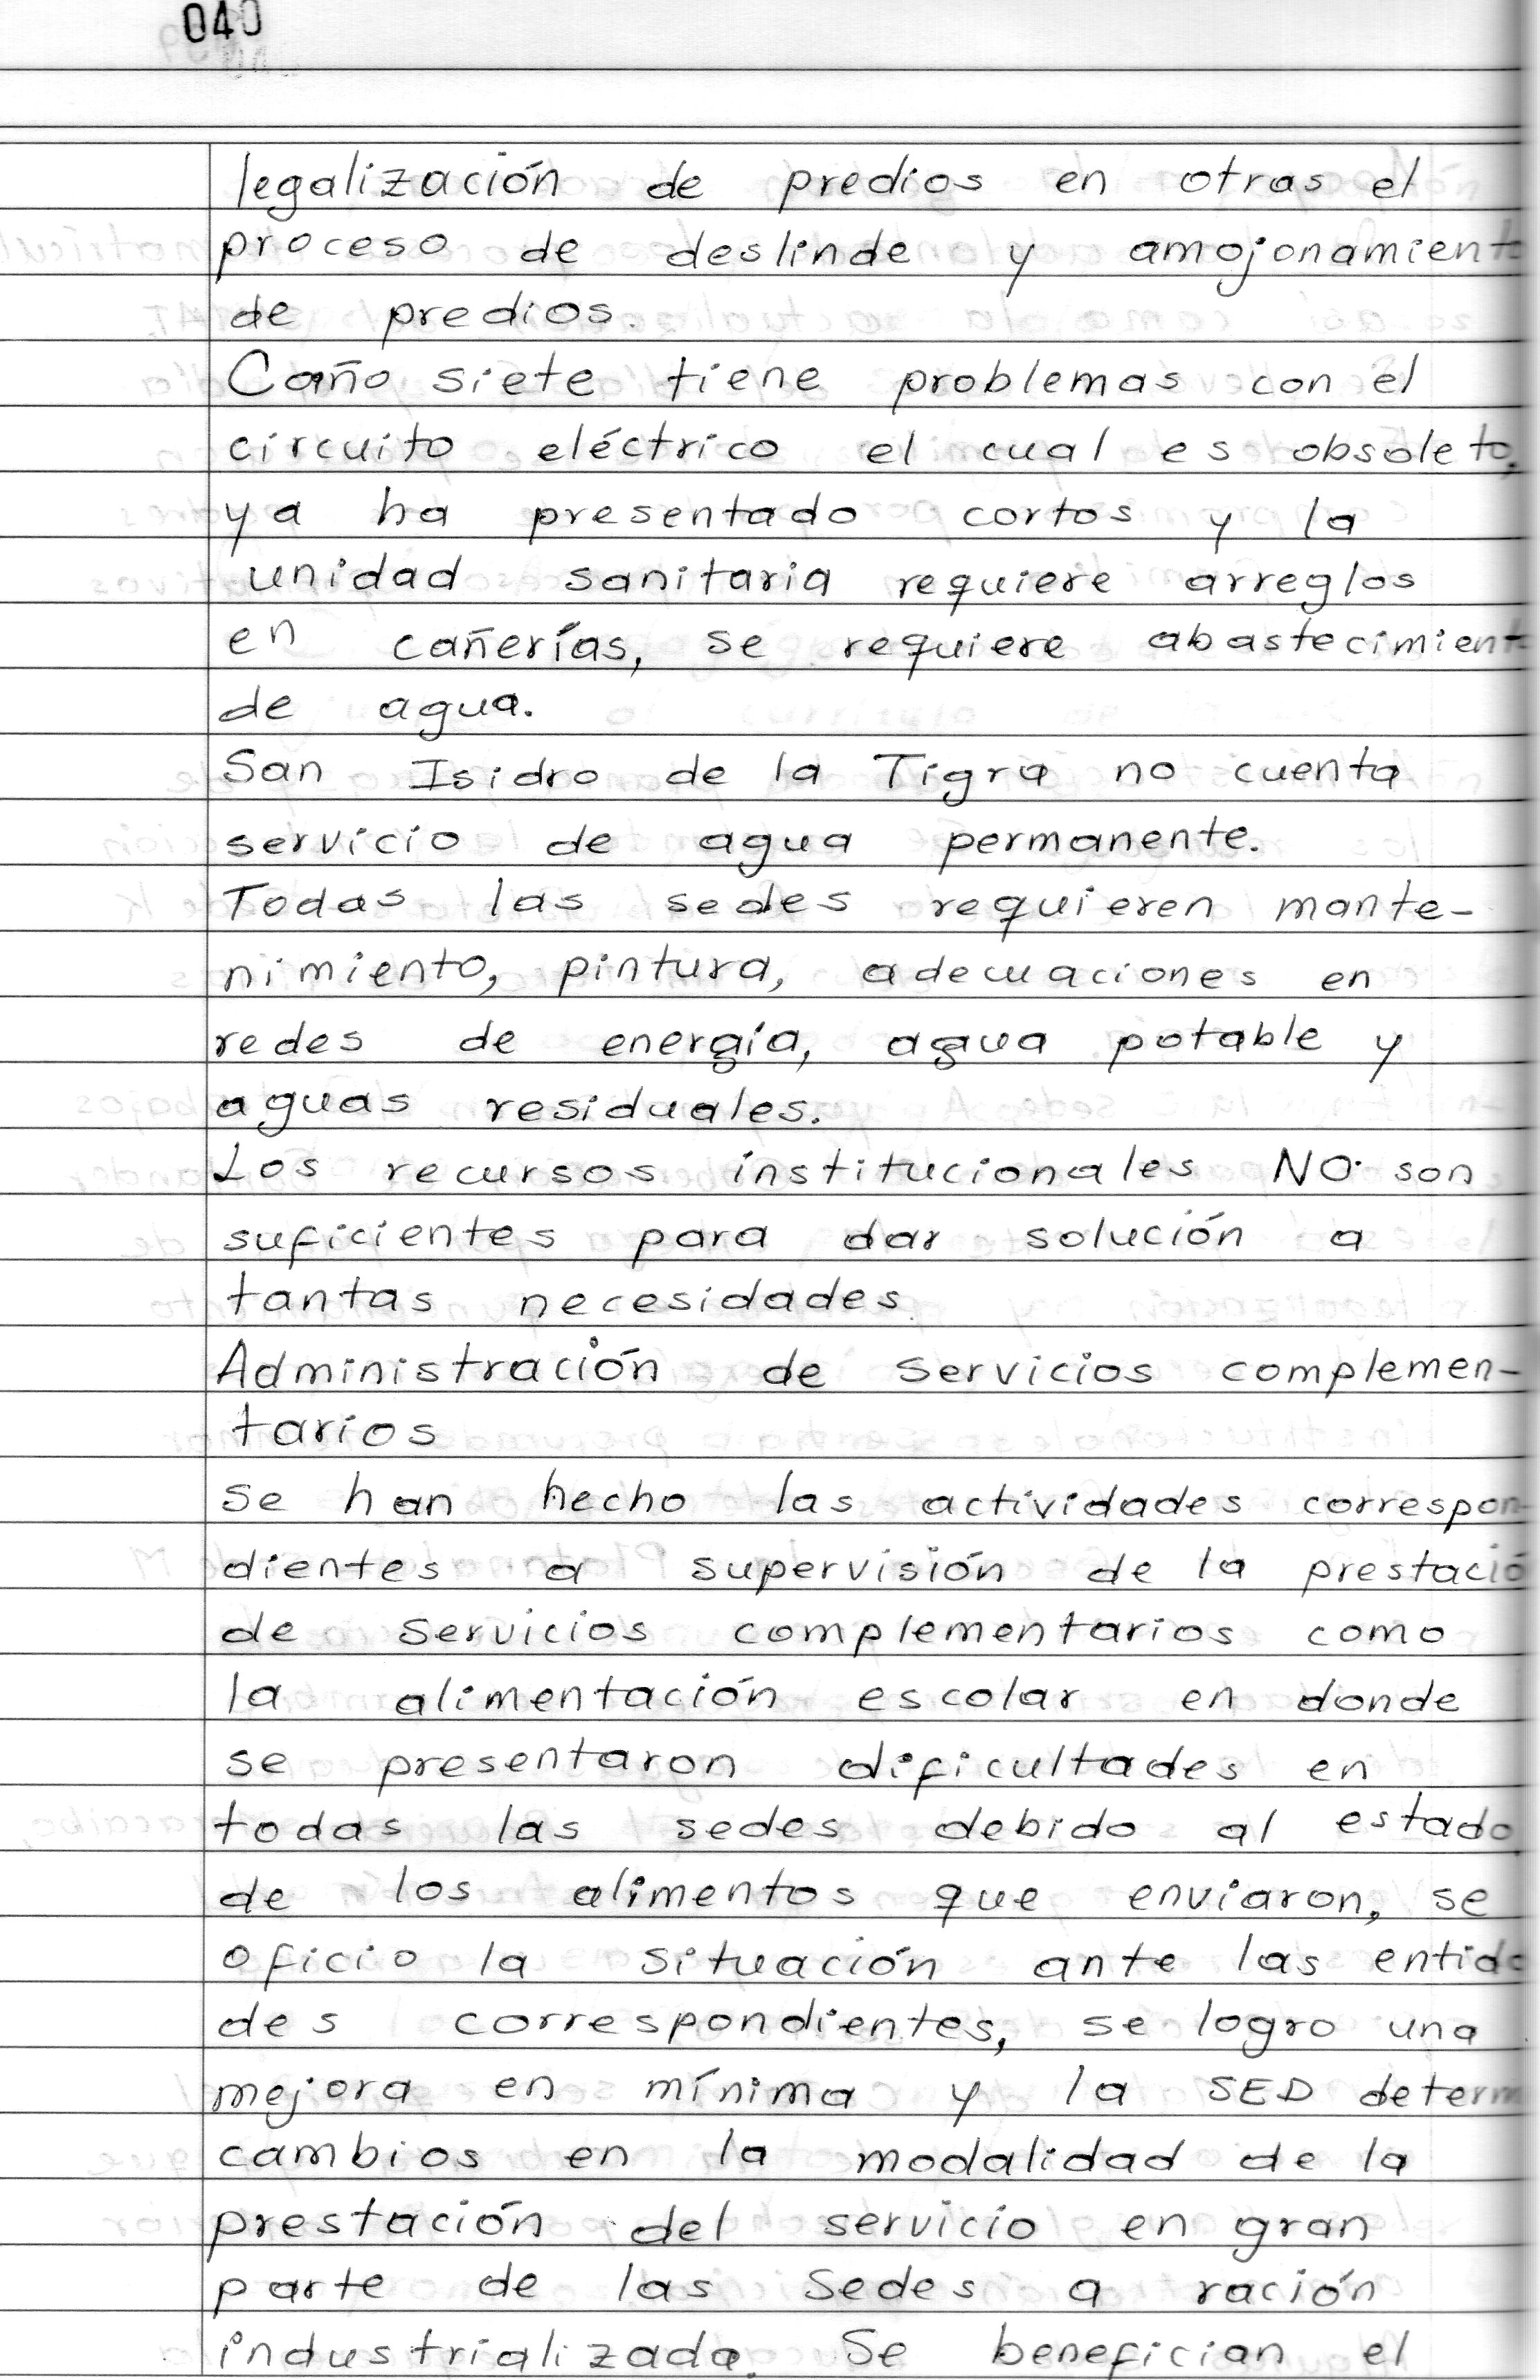 040
legalización de predios en otras el
proceso de deslinde y amojonamient
de predios.
Caño siete tiene problemas con el
circuito eléctrico el cual es obsoleto,
ya ha presentado cortos y la
unidad sanitaria requiere arreglos
en cañerías, se requiere abastecimient
de agua.
San Isidro de la Tigra no cuenta
servicio de agua permanente.
Todas las sedes requieren mante-
nimiento, pintura, adecuaciones en
redes de energía, agua potable y
aguas residuales.
Los recursos institucionales NO son
suficientes para dar solución a
tantas necesidades.
Administración de servicios complemen-
tarios
se han hecho las actividades correspon-
dientes a supervisión de la prestació
de servicios complementarios como
la alimentación escolar en donde
se presentaron dificultades en
todas las sedes debido al estado
de los alimentos que enviaron, se
oficio la situación ante las entida
des correspondientes, se logro una
mejora en mínima y la SED determ
cambios en la modalidad de la
prestación del servicio en gran
parte de las Sedes a ración
industrializada. Se benefician el